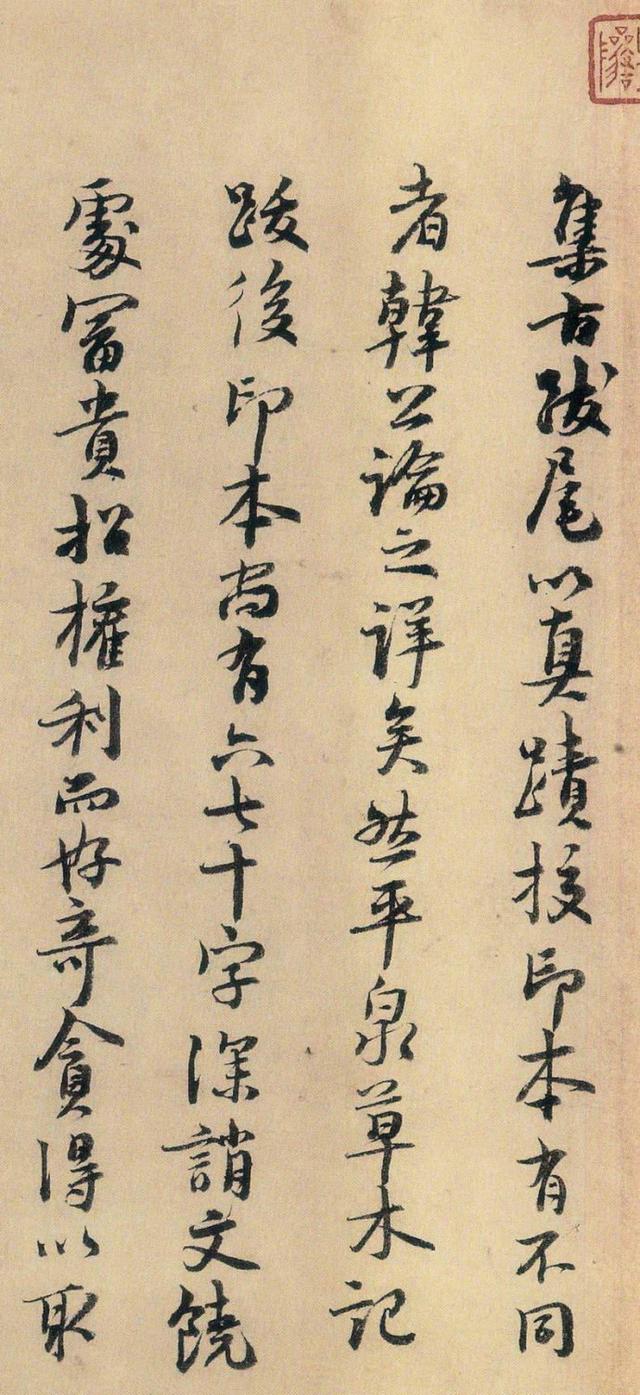 集古跋尾以真蹟挍印本有不同
者韓公論之詳矣然平泉草木記
跋後印本尚有六七十字深誚文饒
處冨貴招權利而好竒貪得以取